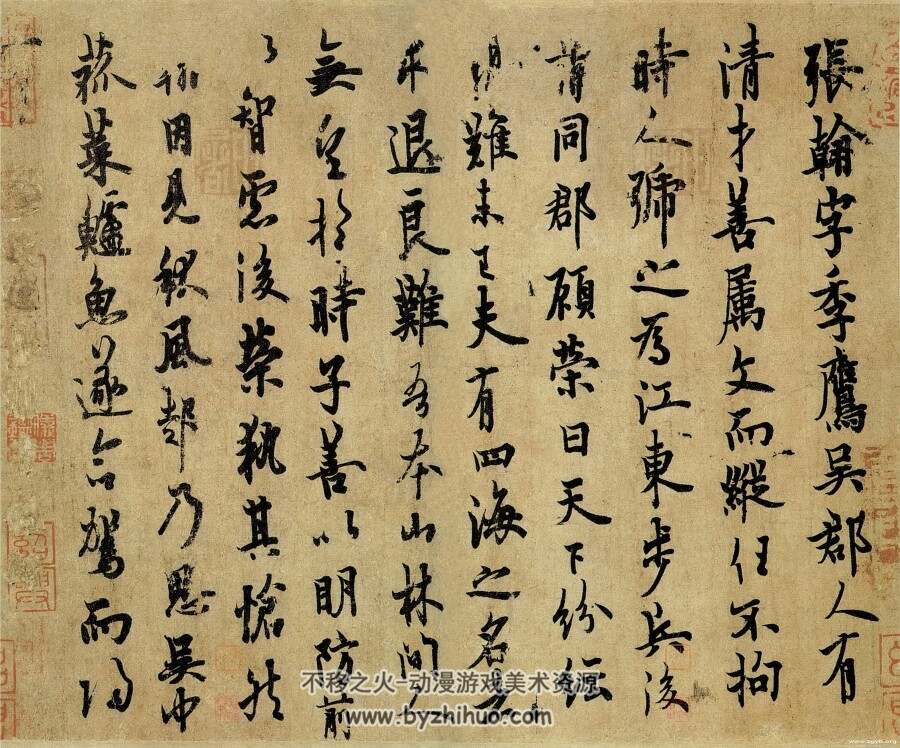 張翰字季鷹吳郡人有
清才善屬文而縱任不拘
時人號之為江東步兵後
謂同郡顧榮曰天下紛紜
禍難未已夫有四海之名者
求退良難吾本山林間人
無望於時子善以明防前
以智慮後榮執其愴然
翰因見秋風起乃思吳中
菰菜鱸魚遂命駕而歸
不移之火-动漫游戏美术资源
www.byzhihuo.com